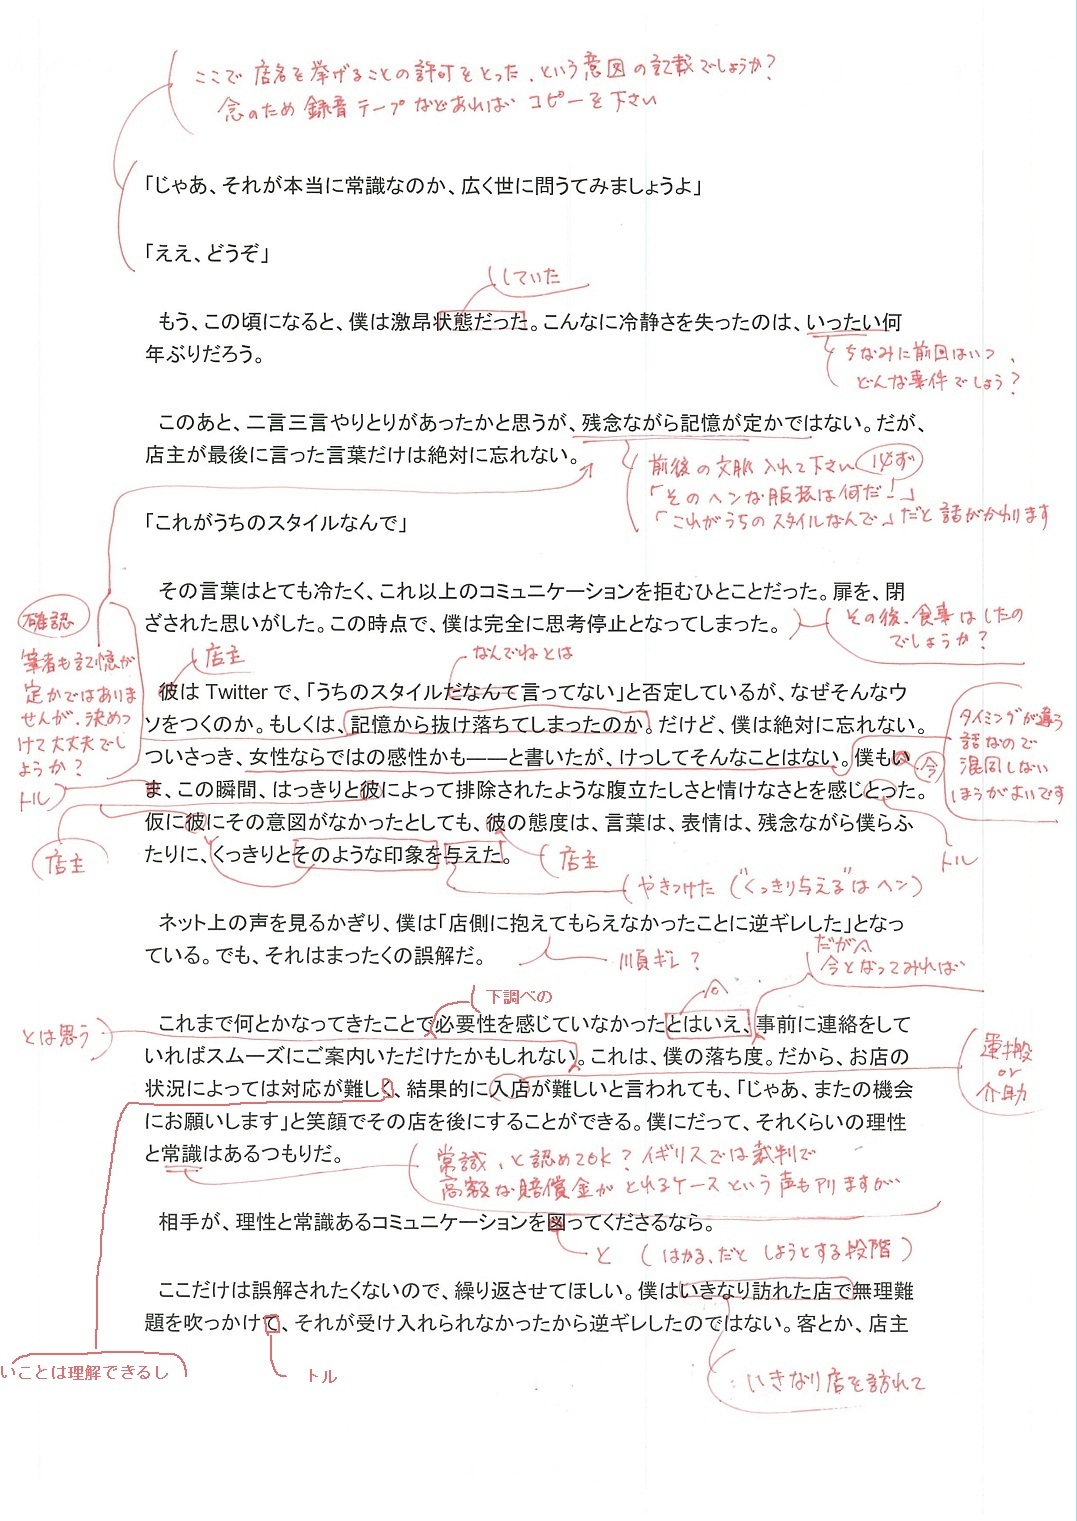 ここで店名を挙げることの許可をとった、という意図の記載でしょうか?
念のため録音テープなどあればコピーを下さい
「じゃあ、それが本当に常識なのか、広く世に問うてみましょうよ」
「ええ、どうぞ」
していた
もう、この頃になると、僕は激昂状態だった。こんなに冷静さを失ったのは、いったい何
年ぶりだろう。
ちなみに前回はいつ、
どんな事件でしょう?
このあと、二言三言やりとりがあったかと思うが、残念ながら記憶が定かではない。だが、
店主が最後に言った言葉だけは絶対に忘れない。
前後の文脈入れて下さい 必ず
「そのヘンな服装は何だ!」
「これがうちのスタイルなんで」だと話がかわります
「これがうちのスタイルなんで」
その言葉はとても冷たく、これ以上のコミュニケーションを拒むひとことだった。扉を、閉
ざされた思いがした。この時点で、僕は完全に思考停止となってしまった。
その後、食事はしたの
でしょうか?
確認
筆者も記憶が
定かではありま
せんが、決めつ
けて大丈夫でし
ようか?
店主
なんでねとは
彼は Twitter で、「うちのスタイルだなんて言ってない」と否定しているが、なぜそんなウ
ソをつくのか。もしくは、記憶から抜け落ちてしまったのか。だけど、僕は絶対に忘れない。
ついさっき、女性ならではの感性かも――と書いたが、けっしてそんなことはない。僕もい
ま、この瞬間、はっきりと彼によって排除されたような腹立たしさと情けなさとを感じとった。
仮に彼にその意図がなかったとしても、彼の態度は、言葉は、表情は、残念ながら僕らふ
たりに、くっきりとそのような印象を与えた。
今
タイミングが違う
話なので
混同しない
ほうがよいです
トル
店主
店主
トル
やきつけた(“くっきり与える”はヘン)
ネット上の声を見るかぎり、僕は「店側に抱えてもらえなかったことに逆ギレした」となっ
ている。でも、それはまったくの誤解だ。
順ギレ?
だが
今となってみれば
下調べの
。
とは思う
これまで何とかなってきたことで必要性を感じていなかったとはいえ、事前に連絡をして
いればスムーズにご案内いただけたかもしれない。これは、僕の落ち度。だから、お店の
状況によっては対応が難しく、結果的に入店が難しいと言われても、「じゃあ、またの機会
にお願いします」と笑顔でその店を後にすることができる。僕にだって、それくらいの理性
と常識はあるつもりだ。
運搬
or
介助
常識、と認めてOK?イギリスでは裁判で
高額な賠償金がとれるケースという声もアリますが
相手が、理性と常識あるコミュニケーションを図ってくださるなら。
と (はかる、だとしようとする段階)
ここだけは誤解されたくないので、繰り返させてほしい。僕はいきなり訪れた店で無理難
題を吹っかけて、それが受け入れられなかったから逆ギレしたのではない。客とか、店主
いことは理解できるし
トル
いきなり店を訪れて